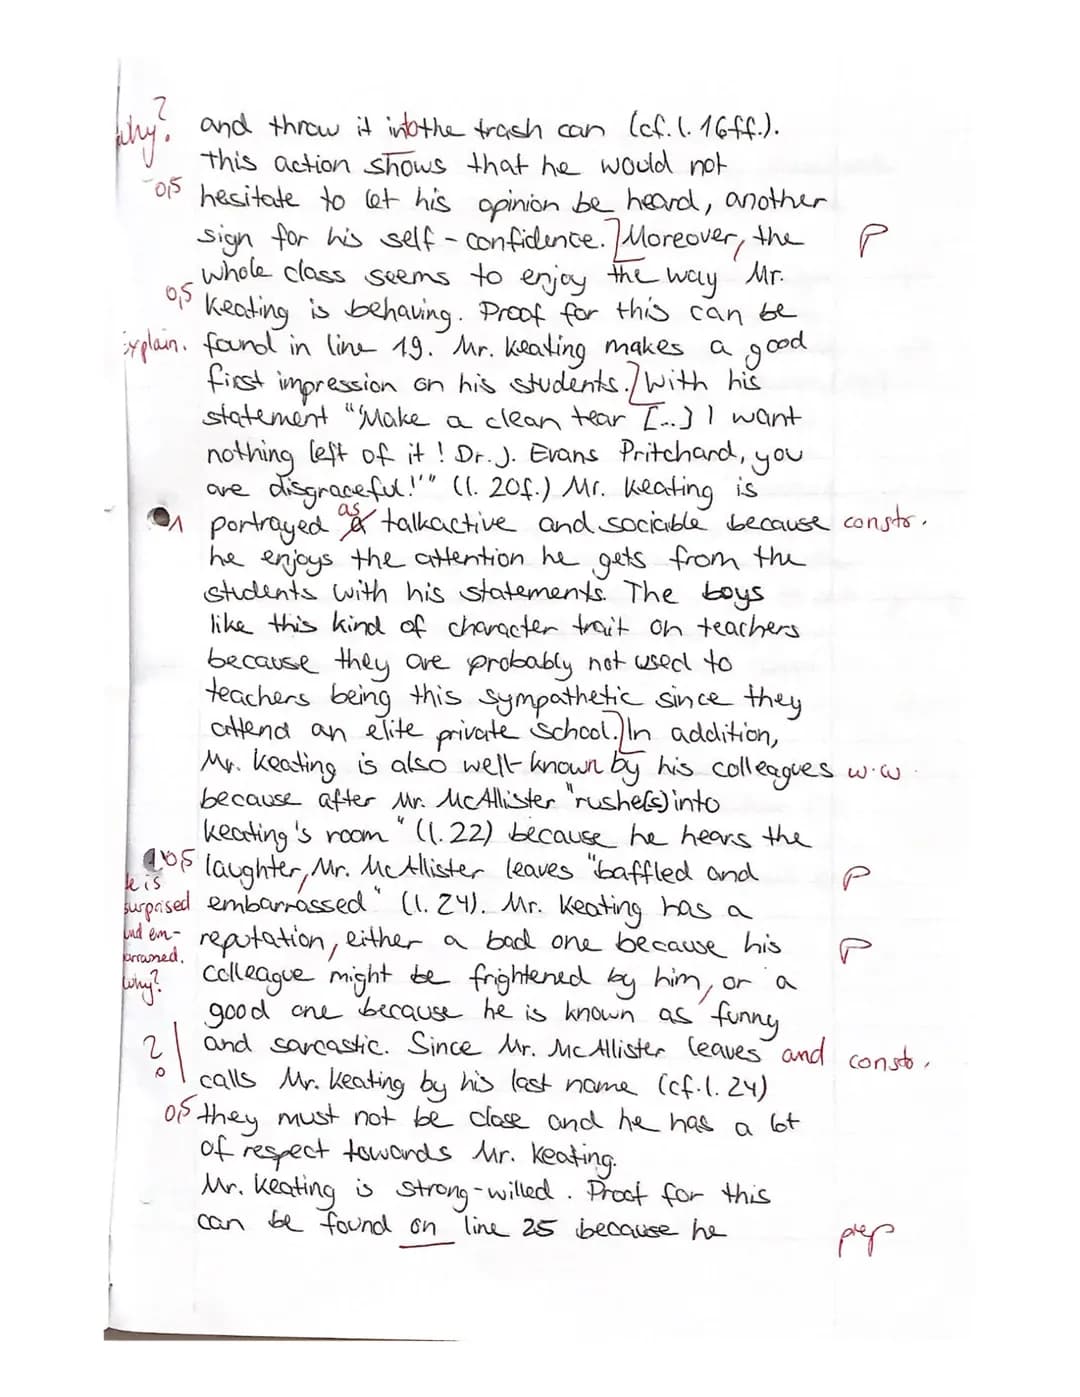 why? and throw it into the trash can (cf. l. 16ff.).
This action shows that he would not
0,5 hesitate to let his opinion be heard, another
sign for his self-confidence. Moreover, the P
whole class seems to enjoy the way Mr.
0,5 Keating is behaving. Proof for this can be
Explain. found in line 19. Mr. Keating makes a good
first impression on his students. With his
statement "Make a clean tear [...] I want
nothing left of it! Dr. J. Evans Pritchard, you
are disgraceful!'" (l. 20f.) Mr. Keating is
1 portrayed as talkactive and sociable because constr.
he enjoys the attention he gets from the
students with his statements. The boys
like this kind of character trait on teachers
because they are probably not used to
teachers being this sympathetic since they
attend an elite private school. In addition,
Mr. Keating is also well-known by his colleagues w.w.
because after Mr. McAllister "rushe[s] into
Keating's room" (l. 22) because he hears the
0,5 laughter, Mr. McAllister leaves "baffled and P
He is surprised embarrassed" (l. 24). Mr. Keating has a
and em- reputation, either a bad one because his P
barrassed. colleague might be frightened by him, or a
why? good one because he is known as funny
? and sarcastic. Since Mr. McAllister leaves and constr.
calls Mr. Keating by his last name (cf. l. 24)
0,5 they must not be close and he has a lot
of respect towards Mr. Keating.
Mr. Keating is strong-willed. Proof for this
can be found on line 25 because he prep